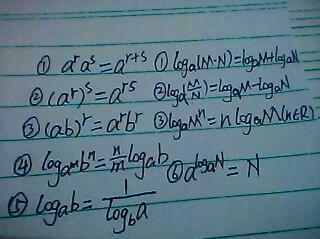 ① aʳaˢ=aʳ⁺ˢ ① logₐ(M·N)=logₐM+logₐN
② (aʳ)ˢ=aʳˢ ② logₐ(M/N)=logₐM-logₐN
③ (ab)ʳ=aʳbʳ ③ logₐMⁿ=n logₐM(n∈R)
④ log_{aᵐ}bⁿ=n/m logₐb ⑥ a^{logₐN}=N
⑤ logₐb=1/log_b a